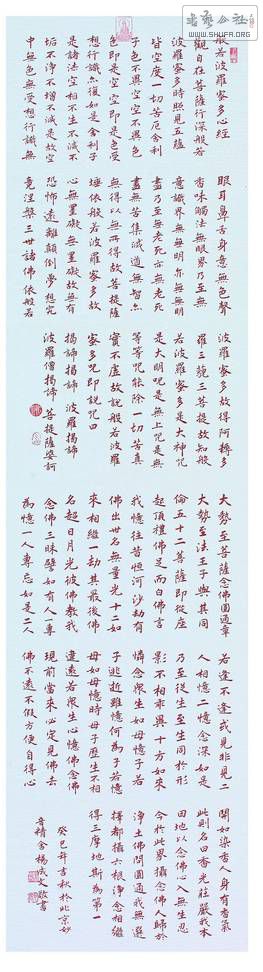 書藝公社
WWW.SHUFA.ORG
般若波羅蜜多心經
觀自在菩薩行深般若
波羅蜜多時照見五蘊
皆空度一切苦厄舍利
子色不異空空不異色
色即是空空即是色受
想行識亦復如是舍利子
是諸法空相不生不滅不
垢不淨不增不減是故空
中無色無受想行識無
眼耳鼻舌身意無色聲
香味觸法無眼界乃至無
意識界無無明亦無無明
盡乃至無老死亦無老死
盡無苦集滅道無智亦
無得以無所得故菩提薩
埵依般若波羅蜜多故
心無罣礙無罣礙故無有
恐怖遠離顛倒夢想究
竟涅槃三世諸佛依般若
波羅蜜多故得阿耨多
羅三藐三菩提故知般
若波羅蜜多是大神咒
是大明咒是無上咒是無
等等咒能除一切苦真
實不虛故說般若波羅
蜜多咒即說咒曰
揭諦揭諦 波羅揭諦
波羅僧揭諦 菩提薩婆訶
大勢至菩薩念佛圓通章
大勢至法王子與其同
倫五十二菩薩即從座
起頂禮佛足而白佛言
我憶往昔恒河沙劫有
佛出世名無量光十二如
來相繼一劫其最後佛
名超日月光彼佛教我
念佛三昧譬如有人一專
為憶一人專忘如是二人
若逢不逢或見非見二
人相憶二憶念深如是
乃至從生至生同於形
影不相乖異十方如來
憐念眾生如母憶子若
子逃逝雖憶何為子若憶
母如母憶時母子歷生不相
違遠若眾生心憶佛念佛
現前當來必定見佛去
佛不遠不假方便自得心
開如染香人身有香氣
此則名曰香光莊嚴我本
因地以念佛心入無生忍
今於此界攝念佛人歸於
淨土佛問圓通我無選
擇都攝六根淨念相繼
得三摩地斯為第一
癸巳年吉秋於北京妙
音精舍楊成文敬書